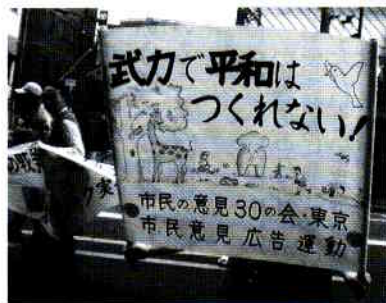 武力で平和は
つくれない!
市民の意見30の会・東京
市民意見広告運動